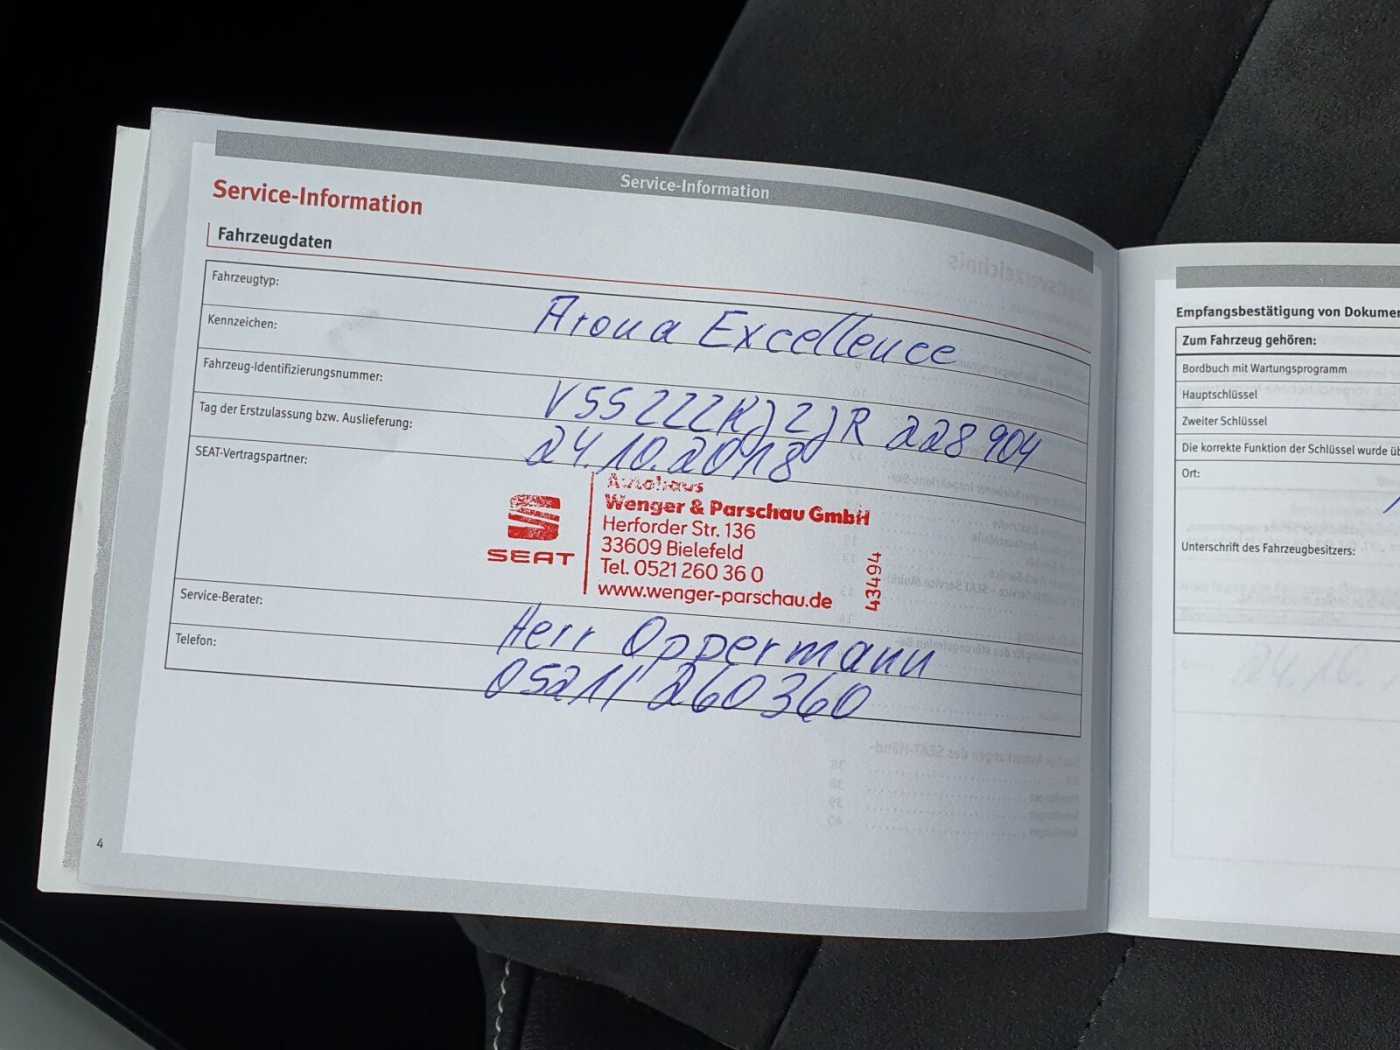 Service-Information
Service-Information
Fahrzeugdaten
Fahrzeugtyp: Arona Excellence
Kennzeichen:
Fahrzeug-Identifizierungsnummer: VSSZZZKJZJR228904
Tag der Erstzulassung bzw. Auslieferung: 24.10.2018
SEAT-Vertragspartner:
SEAT
Autohaus
Wenger & Parschau GmbH
Herforder Str. 136
33609 Bielefeld
Tel. 0521 260 36 0
www.wenger-parschau.de
43494
Service-Berater: Herr Oppermann
Telefon: 0521/ 260360
4
Empfangsbestätigung von Dokumen
Zum Fahrzeug gehören:
Bordbuch mit Wartungsprogramm
Hauptschlüssel
Zweiter Schlüssel
Die korrekte Funktion der Schlüssel wurde üb
Ort:
Unterschrift des Fahrzeugbesitzers: